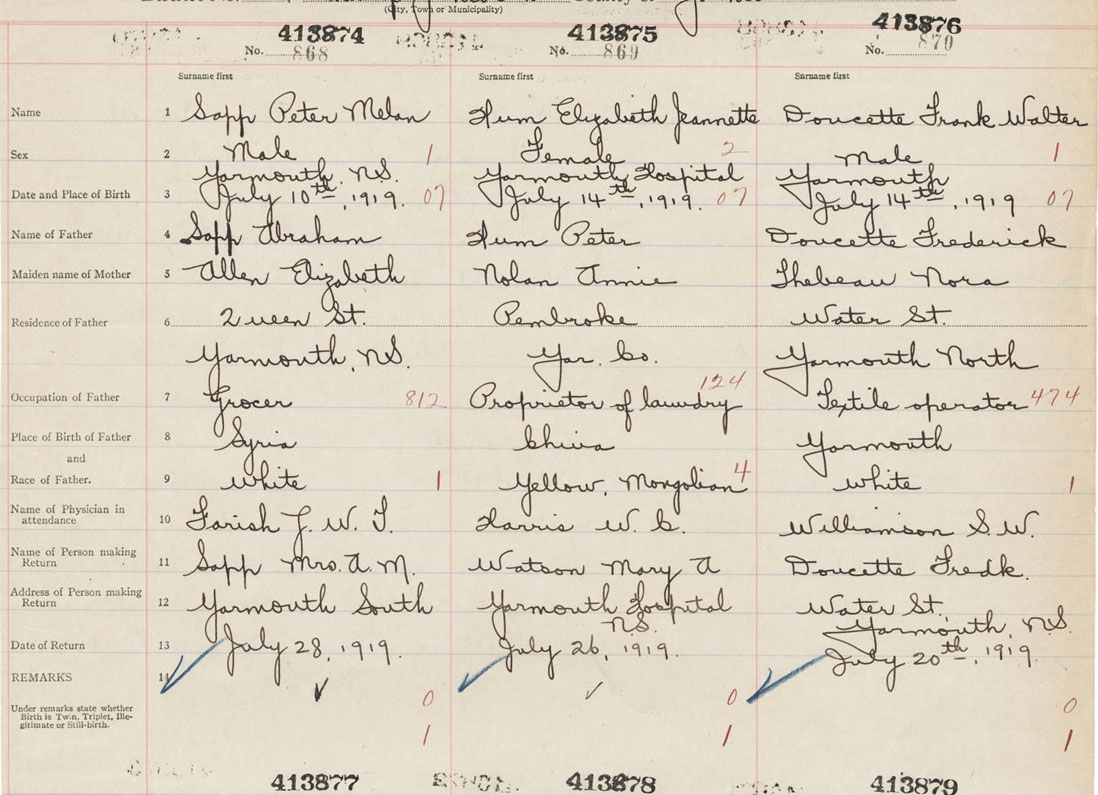 (City, Town or Municipality)
413874 413875 413876
No. 868 No. 869 No. 870
Surname first Surname first Surname first
Name 1 Sapp Peter Melan Hum Elizabeth Jeannette Doucette Frank Walter
Sex 2 Male 1 Female 2 Male 1
Yarmouth, N.S. Yarmouth Hospital Yarmouth
Date and Place of Birth 3 July 10th, 1919. 07 July 14th, 1919. 07 July 14th, 1919 07
Name of Father 4 Sapp Abraham Hum Peter Doucette Frederick
Maiden name of Mother 5 Allen Elizabeth Nolan Annie Thebeau Nora
Residence of Father 6 Queen St. Pembroke Water St.
Yarmouth, N.S. Yar. Co. Yarmouth North
Occupation of Father 7 Grocer 812 Proprietor of laundry 124 Textile operator 474
Place of Birth of Father 8 Syria China Yarmouth
and
Race of Father. 9 White 1 Yellow, Mongolian 4 White 1
Name of Physician in
attendance 10 Farish J. W. T. Harris W. C. Williamson S. W.
Name of Person making
Return 11 Sapp Mrs. A. M. Watson Mary A Doucette Fredk.
Address of Person making
Return 12 Yarmouth South Yarmouth Hospital Water St.,
N.S. Yarmouth, N.S.
Date of Return 13 July 28, 1919. July 26, 1919. July 20th, 1919.
REMARKS 14
Under remarks state whether
Birth is Twin, Triplet, Ille-
gitimate or Still-birth.
0 0 0
1 1 1
413877 413878 413879